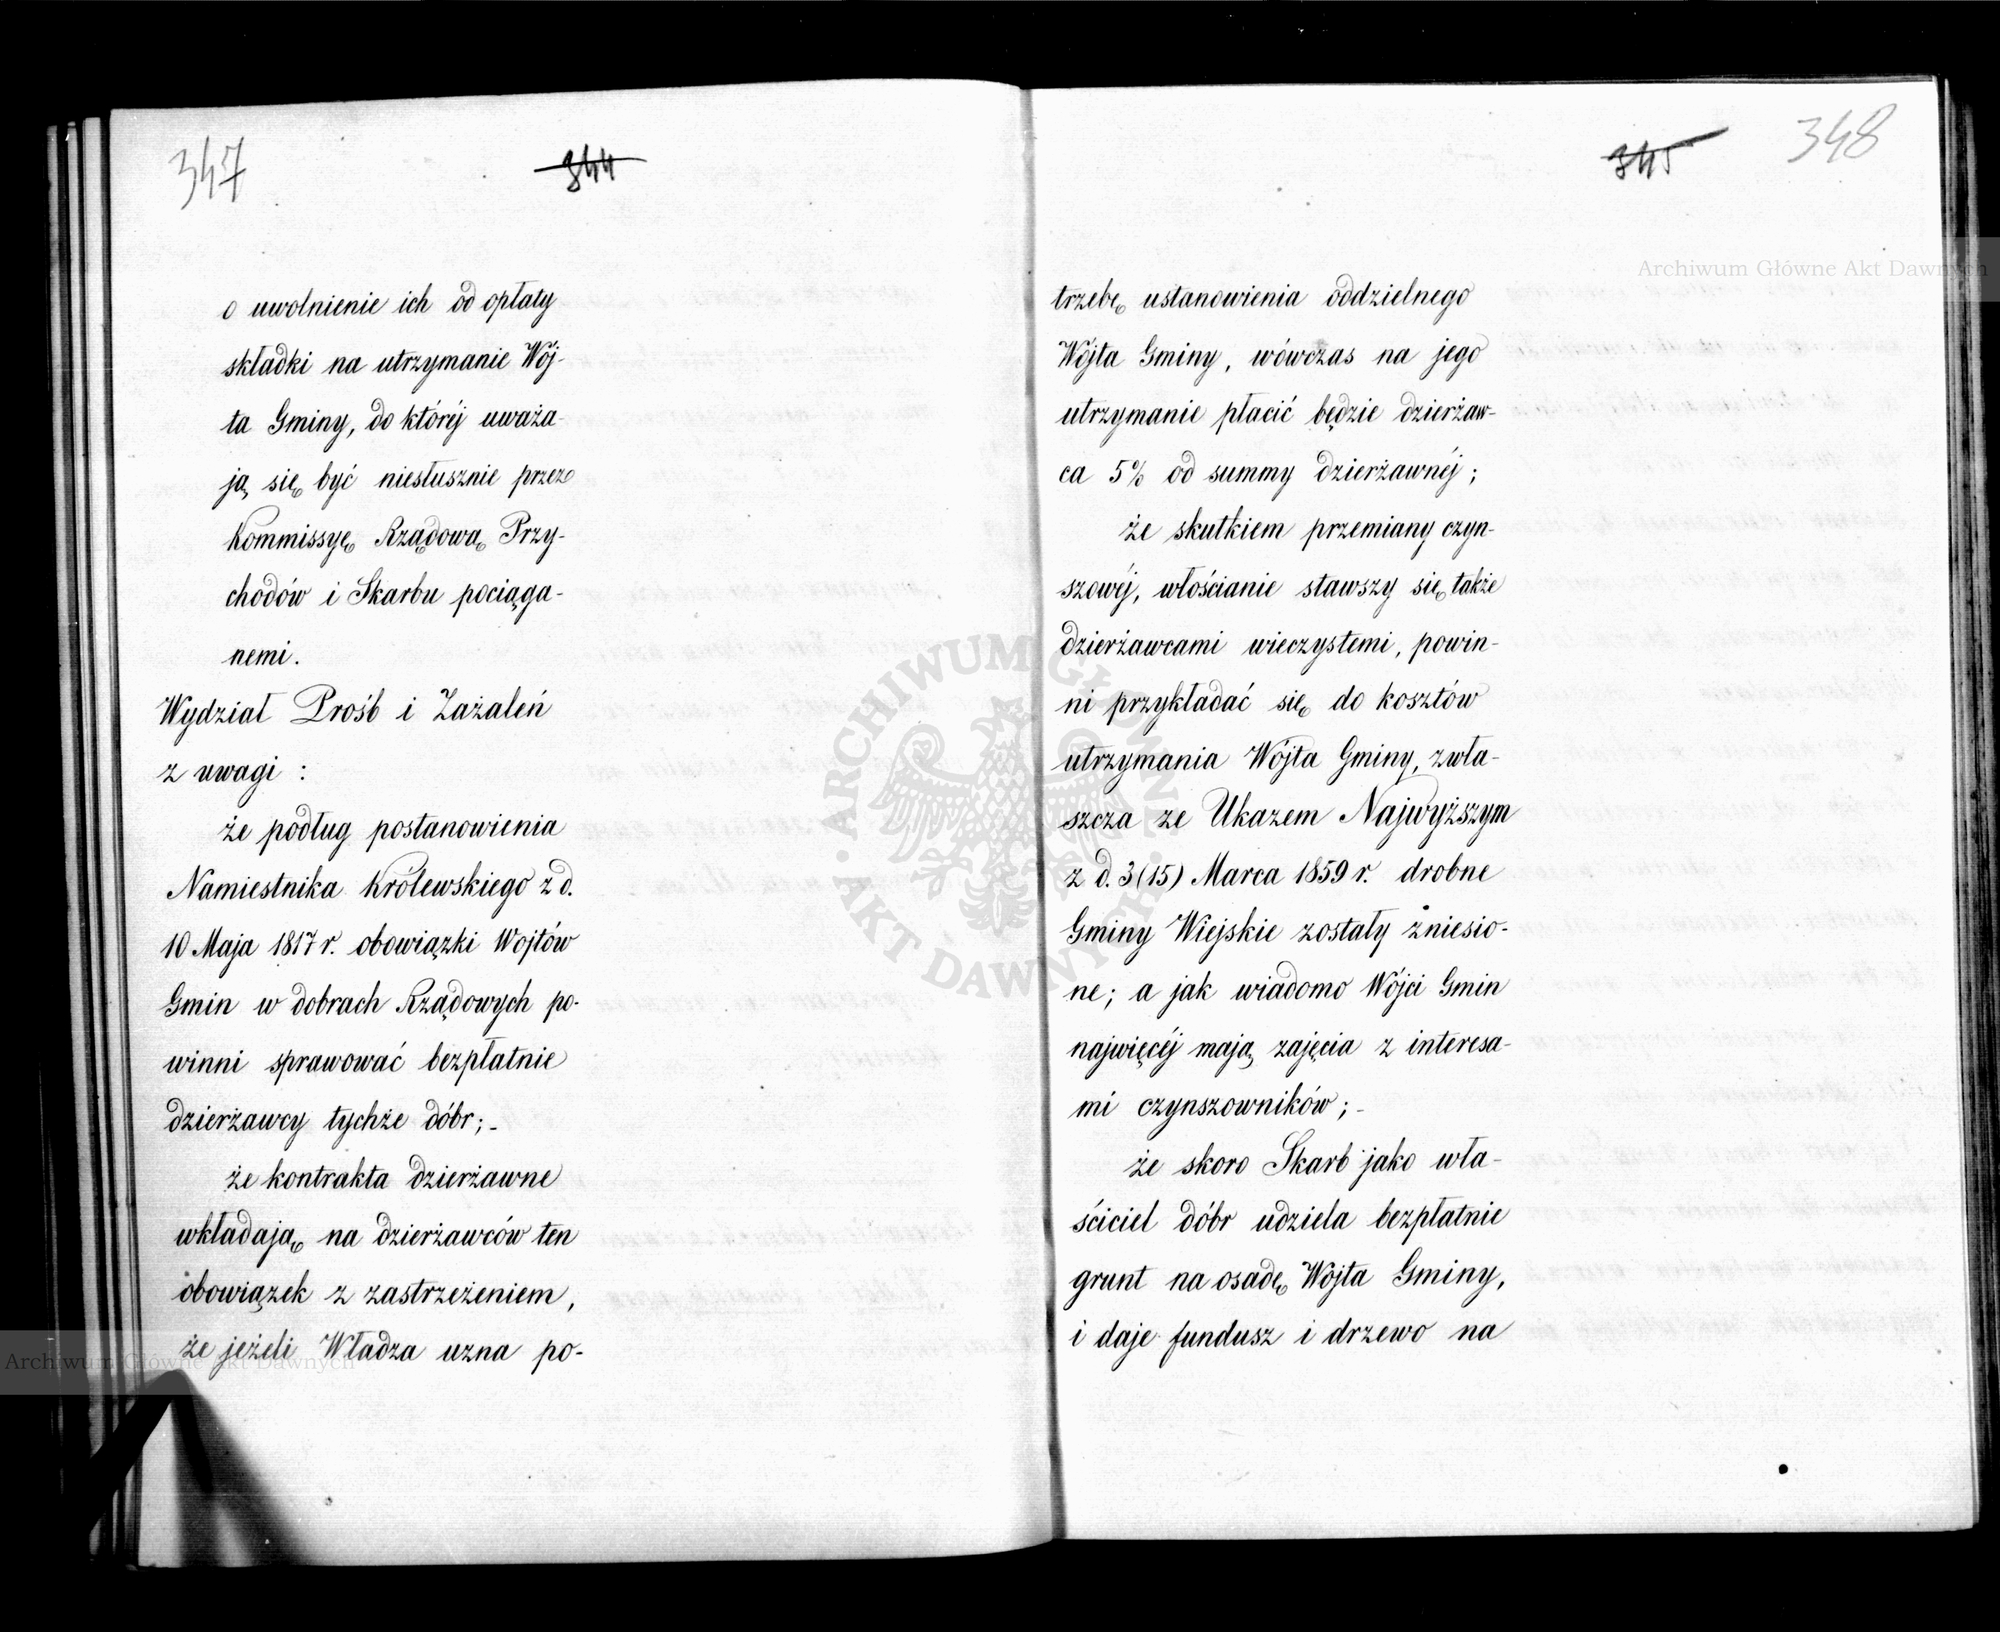 347
344
o uwolnienie ich od opłaty
składki na utrzymanie Wój-
ta Gminy, do któréj uważa-
ją się być niesłusznie przez
Kommissyę Rządową Przy-
chodów i Skarbu pociąga-
nemi.
Wydział Prośb i Zażaleń
z uwagi :
że podług postanowienia
Namiestnika Królewskiego z d.
10 Maja 1817 r. obowiązki Wojtów
Gmin w dobrach Rządowych po-
winni sprawować bezpłatnie
dzierżawcy tychże dóbr; -
że kontrakta dzierżawne
wkładają na dzierżawców ten
obowiązek z zastrzeżeniem,
że jeżeli Władza uzna po-
345
348
trzebę ustanowienia oddzielnego
Wójta Gminy, wówczas na jego
utrzymanie płacić będzie dzierżaw-
ca 5% od summy dzierżawnéj ;
że skutkiem przemiany czyn-
szowéj, włościanie stawszy się także
dzierżawcami wieczystemi, powin-
ni przykładać się do kosztów
utrzymania Wójta Gminy, zwła-
szcza ze Ukazem Najwyższym
z d. 3 (15) Marca 1859 r. drobne
Gminy Wiejskie zostały zniesio-
ne; a jak wiadomo Wójci Gmin
najwięcéj mają zajęcia z interesa-
mi czynszowników ; -
że skoro Skarb jako wła-
ściciel dóbr udziela bezpłatnie
grunt na osadę Wójta Gminy,
i daje fundusz i drzewo na
Archiwum Główne Akt Dawnych
Archiwum Główne Akt Dawnych
ARCHIWUM GŁÓWNE · AKT DAWNYCH ·